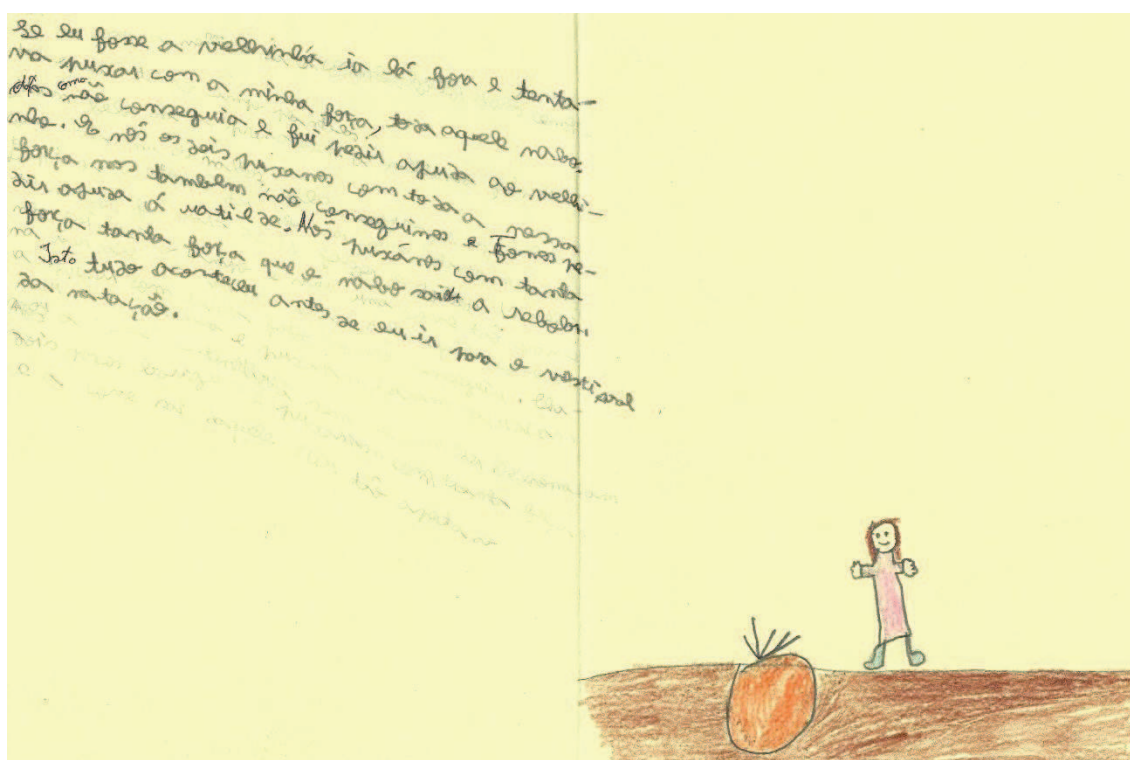 Se eu fosse a velhinha ia lá fora e tenta-
va puxar com a minha força, toda aquele nabo.
Mas como não conseguia e fui pedir ajuda ao velhi-
nho. E nós os dois puxamos com toda a nossa
força mas também não conseguimos e Fomos pe-
dir ajuda á vatilde. Nós puxámos com tanta
força tanta força que o nabo saiu a rebolar.
Isto tudo aconteceu antes de eu ir para o vestiaral
da natação.